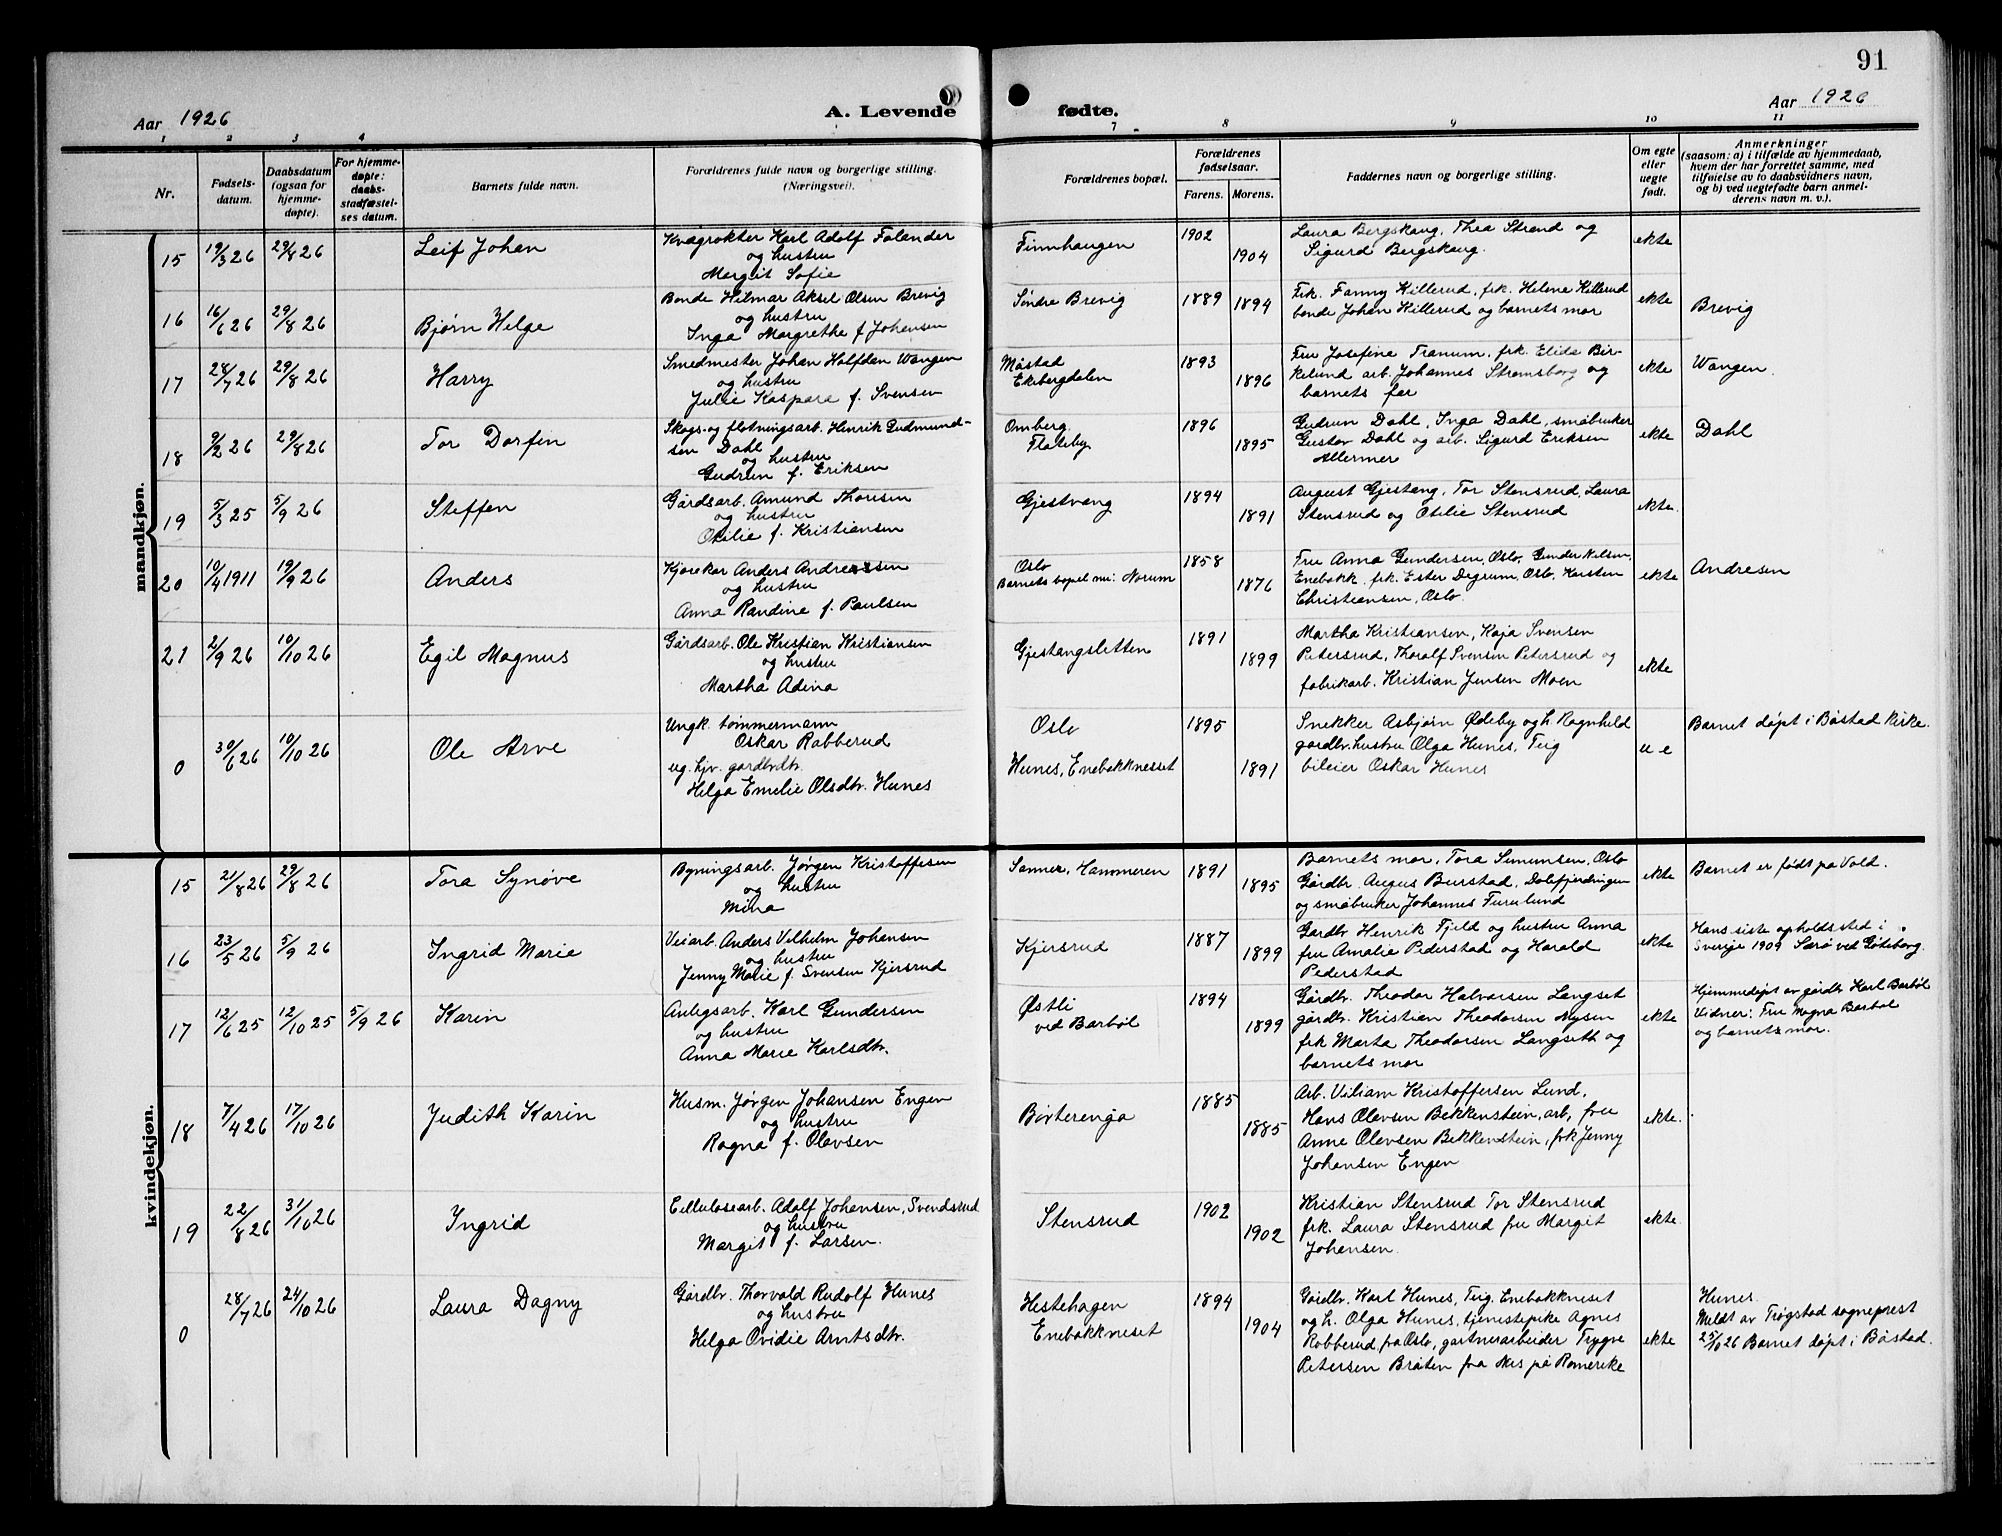 91
Aar 1926
A. Levende
fødte.
Aar 1926
1 2 3 4 7 8 9 10 11
Nr.
Fødsels-
datum.
Daabsdatum
(ogsaa for
hjemme-
døpte).
For hjemme-
døpte:
daabs-
stadfæstel-
ses datum.
Barnets fulde navn.
Forældrenes fulde navn og borgerlige stilling.
(Næringsvei).
Forældrenes bopæl.
Forældrenes
fødselsaar.
Farens. Morens.
Faddernes navn og borgerlige stilling.
Om egte
eller
uegte
født.
Anmerkninger
(saasom: a) i tilfælde av hjemmedaab,
hvem der har forrettet samme, med
tilføielse av to daabsvidners navn,
og b) ved uegtefødte barn anmel-
derens navn m. v.).
mandkjøn.
15 19/3 26 29/8 26 Leif Johan
Kvægrøkter Karl Adolf Falander
og hustru
Margit Sofie
Finnhaugen
1902
1904
Laura Bergskaug, Thea Strand og
Sigurd Bergskaug.
ekte
16 16/6 26 29/8 26 Bjørn Helge
Bonde Hilmar Aksel Olsen Brevig
og hustru
Inga Margrethe f. Johansen
Søndre Brevig
1889
1894
Frk. Fanny Killerud, frk. Helene Killerud
bonde Johan Killerud og barnets mor
ekte
Brevig
17 28/7 26 29/8 26 Harry
Smedmester Johan Halfdan Wangen
og hustru
Julie Kaspara f. Svensen
Måstad
Ekebergdalen
1893
1896
Fru Josefine Tranum, frk. Elida Bir-
kelund arb. Johannes Strømsborg og
barnets far
ekte
Wangen.
18 9/2 26 29/8 26 Tor Dorfin
Skogs- og fløtningsarb. Henrik Gudmund-
sen Dahl
og hustru
Gudrun f. Eriksen
Omberg.
Flateby
1896
1895
Gudrun Dahl, Inga Dahl, småbruker
Gustav Dahl og arb. Sigurd Eriksen
Allermer
ekte
Dahl
19 5/3 25 5/9 26 Steffen
Gårdsarb. Amund Thoresen
og hustru
Otilie f. Kristiansen
Gjestvang
1894
1891
August Gjestang, Tor Stensrud, Laura
Stensrud og Otilie Stensrud
ekte.
20 10/4 1911 19/9 26 Anders
Kjørekar Anders Andreassen
og hustru
Anna Randine f. Paulsen
Oslo
Barnets bopel nu: Norum
1858
1876
Fru Anna Gundersen, Oslo, Gunder Nilsen,
Enebakk. frk. Ester Degrum, Oslo, Karsten
Christiansen, Oslo.
ekte
Andresen
21 2/9 26 10/10 26 Egil Magnus
Gårdsarb. Ole Kristian Kristiansen
og hustru
Martha Adina
Gjestangsletten
1891
1899
Martha Kristiansen, Kaja Svensen
Petersrud, Thoralf Svensen Petersrud og
fabrikarb. Kristian Jensen Moen
ekte
0 30/6 26 10/10 26 Ole Arve
Ungk. tømmermann
Oskar Robberud
ug. hjv. gardbrdtr.
Helga Emelie Olsdtr. Hunes
Oslo
Hunes, Enebakkneset
1895
1891
Snekker Asbjørn Ødeby og h. Ragnhild
gardbr. hustru Olga Hunes, Tuig
bileier Oskar Hunes
u e
Barnet døpt i Båstad kirke.
kvindekjøn.
15 21/8 26 29/8 26 Tora Synøve
Bygningsarb. Jørgen Kristoffesen
og hustru
Mina
Sanner, Hammeren
1891
1895
Barnets mor, Tora Simunsen, Oslo
Gårdbr. Augus Burstad, Dalefjerdingen
og småbruker Johannes Furulund
ekte
Barnet er født på Vold.
16 23/5 26 5/9 26 Ingrid Marie
Veiarb. Anders Vilhelm Johansen
og hustru
Jenny Marie f. Svensen Kjersrud
Kjersrud
1887
1899
Gardbr. Henrik Fjeld og hustru Anna
fru Amalie Pederstad og Harald
Pederstad
ekte
Hans siste opholdssted i
Sverige 1909 Særø ved Gøteborg.
17 12/6 25 12/10 25 5/9 26 Karin
Anlegsarb. Karl Gundersen
og hustru
Anna Marie Karlsdtr.
Østli
ved Barbøl
1894
1899
Gårdbr. Theodor Halvorsen Langset
gårdbr. Kristian Theodorsen Nysen
frk Marta Theodorsen Langseth og
barnets mor
ekte
Hjemmedøpt av gårdbr Karl Barbøl
Vidner: Fru Magna Barbøl
og barnets mor.
18 7/4 26 17/10 26 Judith Karin
Husm. Jørgen Johansen Engen
og hustru
Ragna f. Olavsen
Børterenga
1885
1885
Arb. Viliam Kristoffersen Lund,
Hans Olavsen Bekkenstein, arb, fru
Anne Olevsen Bekkenstein, frk Jenny
Johansen Engen
ekte.
19 22/8 26 31/10 26 Ingrid
Cellulosearb. Adolf Johansen, Svendsrud
og hustru
Margit f. Larsen.
Stensrud
1902
1902
Kristian Stensrud Tor Stensrud
frk. Laura Stensrud fru Margit
Johansen.
ekte.
0 28/7 26 24/10 26 Laura Dagny
Gårdbr. Thorvald Rudolf Hunes
og hustru
Helga Ovidie Arntsdtr.
Hestehagen
Enebakkneset
1894
1904
Gårdbr. Karl Hunes, Tuig, Enebakkneset
og h. Olga Hunes, tjenestepike Agnes
Robberud, fra Oslo, gartnerarbeider Trygve
Petersen Bråten fra Nes på Romerike
ekte
Hunes.
Meldt av Trøgstad sogneprest
25/10 26 Barnet døpt i Båstad.